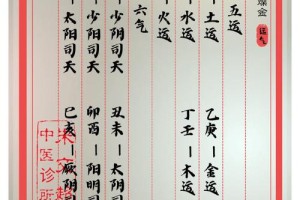 金
运气
五运
—土运 乙庚—金运
—水运 丁壬—木运
—火运
六气
—少阴司天 丑未—太阴
—少阳司天 卯酉—阳明司
—太阳司天 巳亥—厥阴司
中医诊所